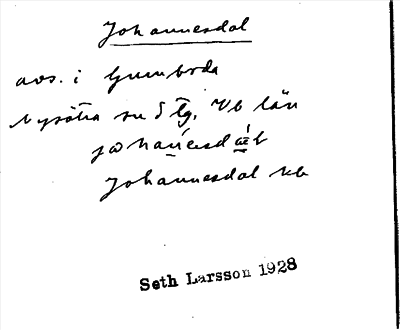 Johannesdal
avs. i Gumboda
Nysätra sn S tg, Vb län
Johannesdal kb
Seth Larsson 1928